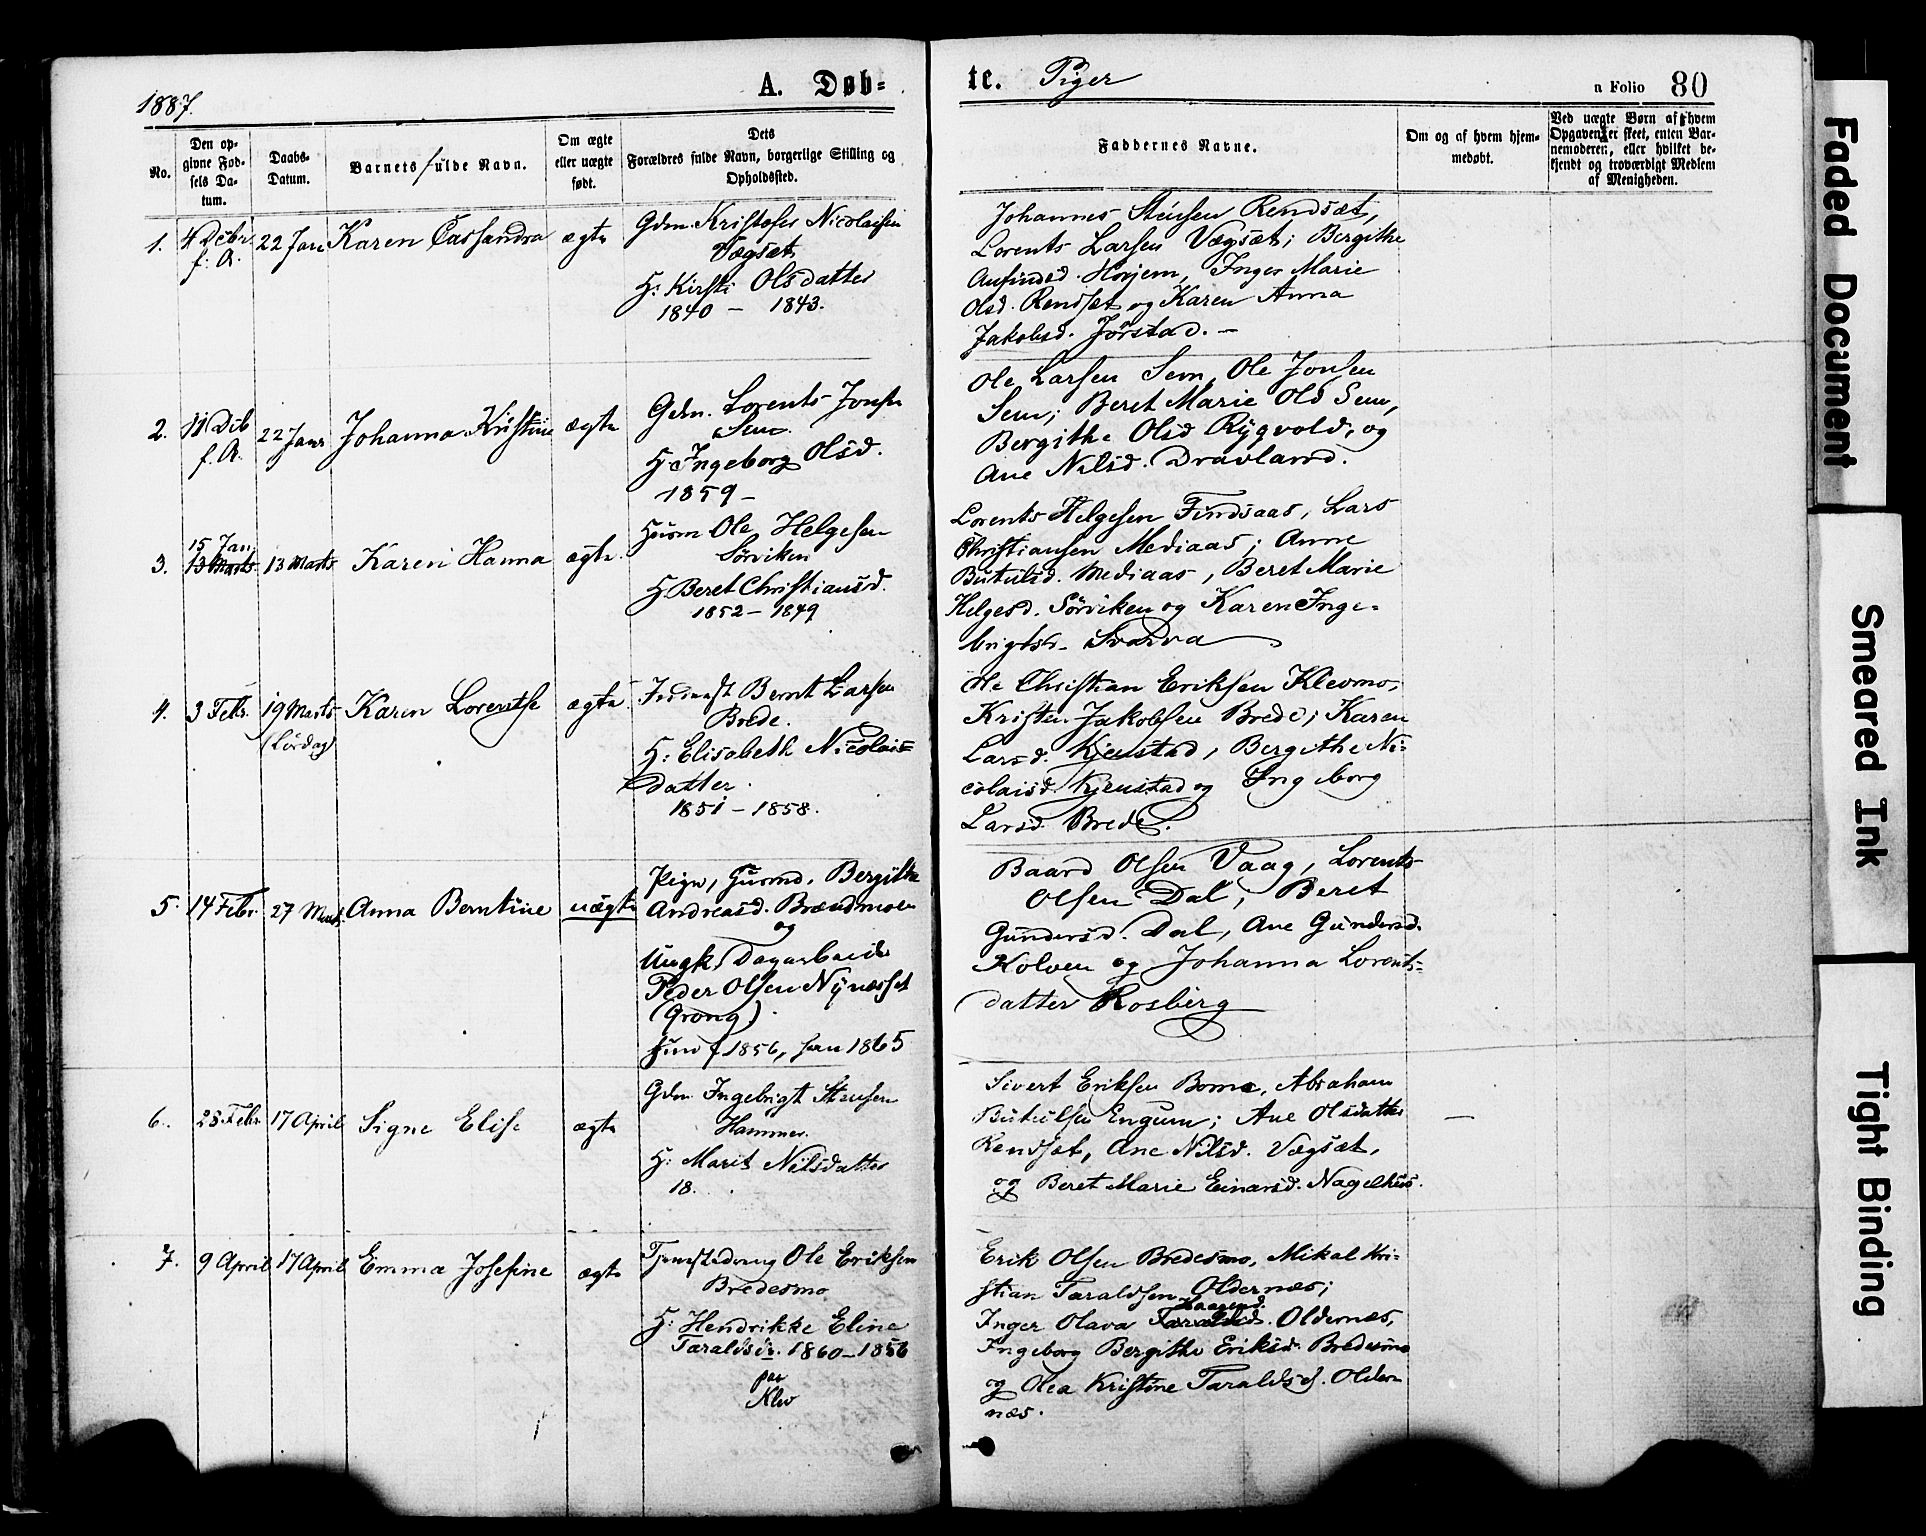 1887.
A. Døb=
te. Piger
n Folio 80
No.
Den op-
givne Fød-
sels Da-
tum.
Daabs-
Datum.
Barnets fulde Navn.
Om ægte
eller uægte
født.
Dets
Forældres fulde Navn, borgerlige Stilling og
Opholdssted.
Faddernes Navne.
Om og af hvem hjem-
medøbt.
Ved uægte Børn af hvem
Opgaven er skeet, enten Bar-
nemoderen, eller hvilket be-
kjendt og troværdigt Medlem
af Menigheden.
1.
4 Decbr
f. A.
22 Jan
Karen Cassandra
ægte
Gdm. Kristofer Nicolaisen
Vægsæt
H: Kirsti Olsdatter
1840 – 1843.
Johannes Stensen Rendsæt,
Lorents Larsen Vægsæt; Bergithe
Anfindsd. Horjem, Inger Marie
Olsd. Rendsæt og Karen Anna
Jakobsd. Jørstad. –
2.
11 Dcb
f. A.
22 Janr
Johanna Kristine
ægte
Gdm. Lorents Jonsen
Sem.
H Ingeborg Olsd.
1859 –
Ole Larsen Sem, Ole Jonsen
Sem; Beret Marie Olsd Sem,
Bergithe Olsd Rygvold, og
Ane Nilsd. Dravland.
3.
15 Jan
13 Marts
13 Marts
Karen Hanna
ægte.
Husm Ole Helgesen
Sörviken
H Beret Christiansd.
1852 – 1849
Lorents Helgesen Findsaas, Lars
Christiansen Mediaas; Anne
Butulsd. Mediaas, Beret Marie
Helgesd. Sörviken og Karen Inge-
brigtsd. Svarva
4.
3 Febr.
19 Marts
(Lørdag)
Karen Lorentse
ægte
Bernt Larsen
Brede.
H: Elisabeth Nicolais=
datter.
1851 – 1858.
Ole Christian Eriksen Klevmo,
Kristen Jakobsen Brede; Karen
Larsd. Kjenstad, Bergithe Ni-
colaisd. Kjenstad og Ingeborg
Larsd. Brede.
5.
14 Febr.
27 Marts
Anna Berntine
uægte
Pige, Husmd. Bergithe
Andreasd. Brændmoen
og
Ungk. Dagarbeider
Peder Olsen Nynæsset
(Grong).
hun f 1856, han 1865
Baard Olsen Vaag, Lorents
Olsen Dal, Beret
Gundersd. Dal, Ane Gundersd.
Kolven og Johanna Lorents-
datter Rosberg
6.
28 Febr
17 April
Signe Elise
ægte
Gdm Ingebrigt Stensen
Hammer.
H: Marit Nilsdatter
18.
Sivert Eriksen Bomo, Abraham
Butulsen Engum; Ane Olsdatter
Rendsæt, Ane Nilsd. Vægsæt,
og Beret Marie Einarsd. Nagelhus.
–
7.
9 April
17 April
Emma Josefine
ægte
Ole Eriksen
Bredesmo
H: Hendrikke Eline
Taraldsdr. 1860 – 1856
paa
Klev
Erik Olsen Bredesmo, Mikal Kri-
stian Taraldsen Oldernæs;
Haavard.
Inger Olava Taraldsd. Oldernæs,
Ingeborg Bergithe Eriksd. Bredesmo
og Olea Kristine Taraldsd. Older-
næs.
Faded Document
Smeared Ink
Tight Binding